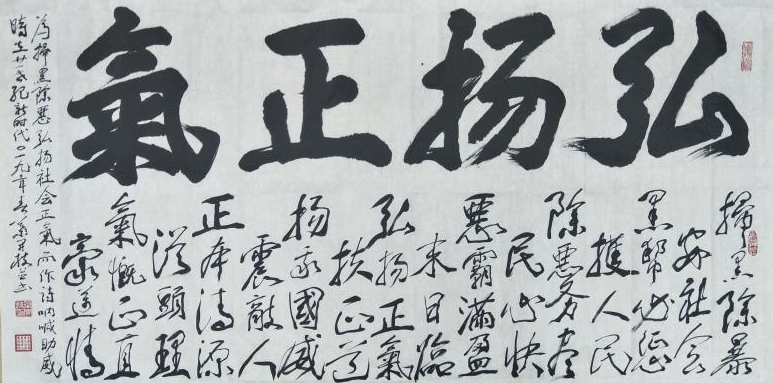 弘扬正氣
掃黑除暴
安社会
黑帮必惩
護人民
除惡务尽
民心快
惡霸滿盈
末日臨
弘扬正氣
扶正道
扬我國威
震敵人
正本清源
從頭理
氣慨正直
豪邁情
為掃黑除惡弘扬社会正氣而作诗呐喊助威
時在廿一世纪新时代二〇一九年春